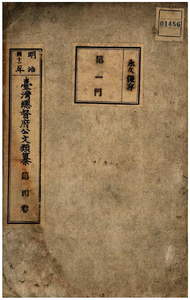 01456
永久保存
第一門
明治
四十一年
臺灣總督府公文類纂
第四卷